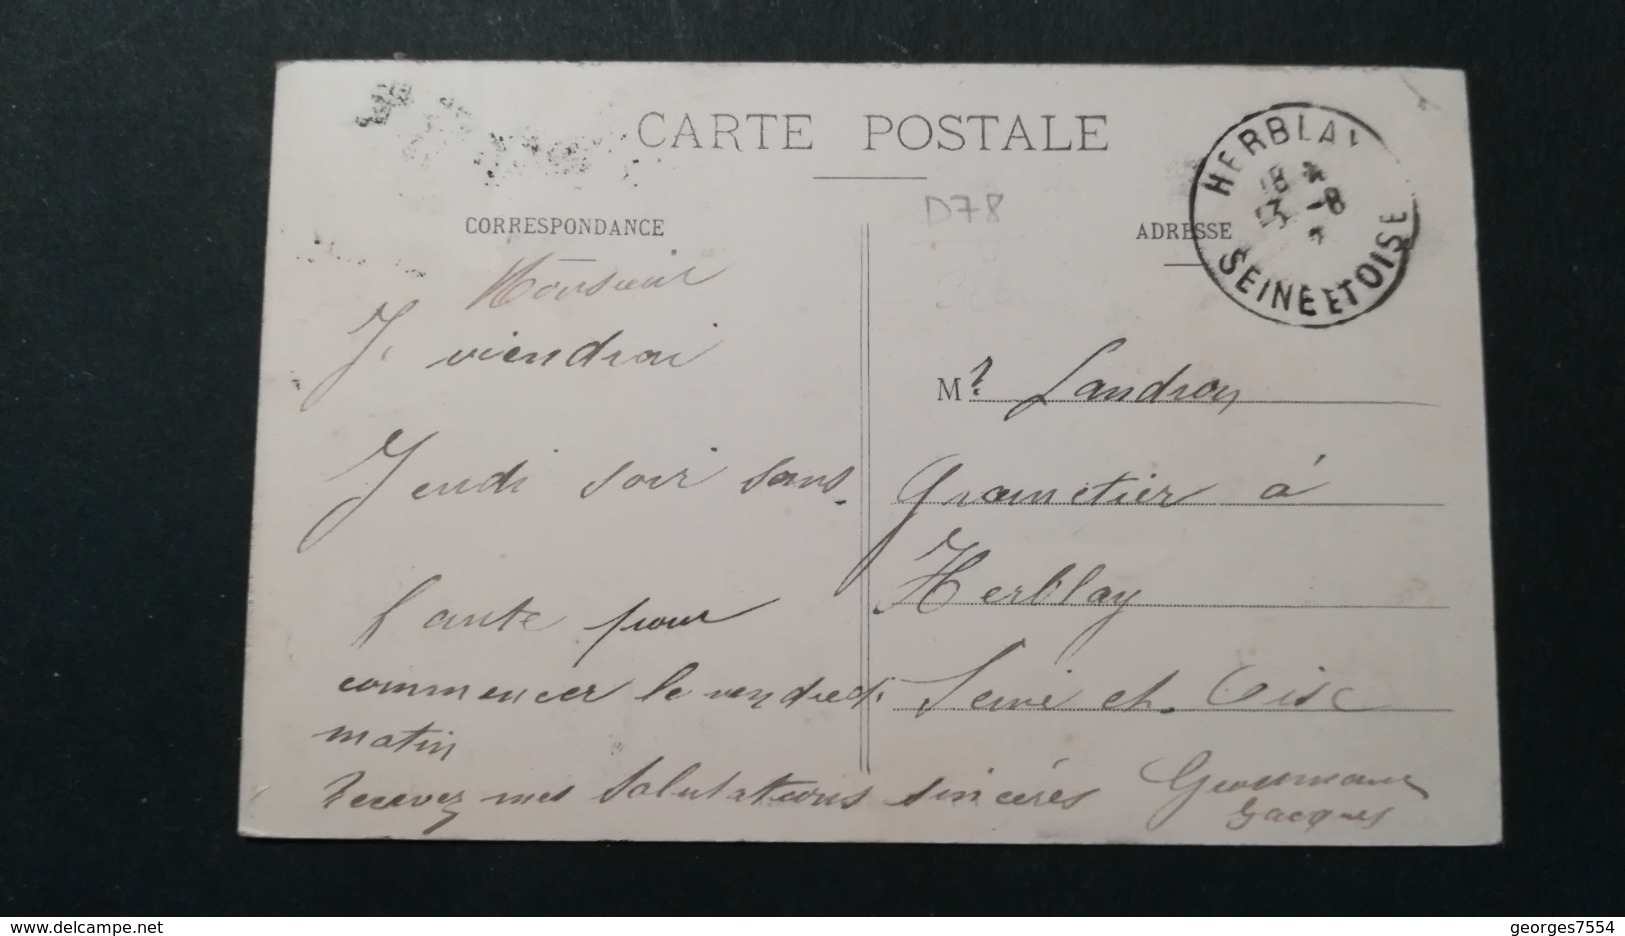 CARTE POSTALE
D78
CORRESPONDANCE
Monsieur
Je viendrai
Jeudi soir sans
faute pour
commencer le vendredi
matin
Recevez mes Salutations sincéres
Jacques
ADRESSE
HERBLAY
18
13 -8
SEINE ET OISE
Mr Landron
Grainetier á
Herblay
Seine et Oise
delcampe.net
georges7554